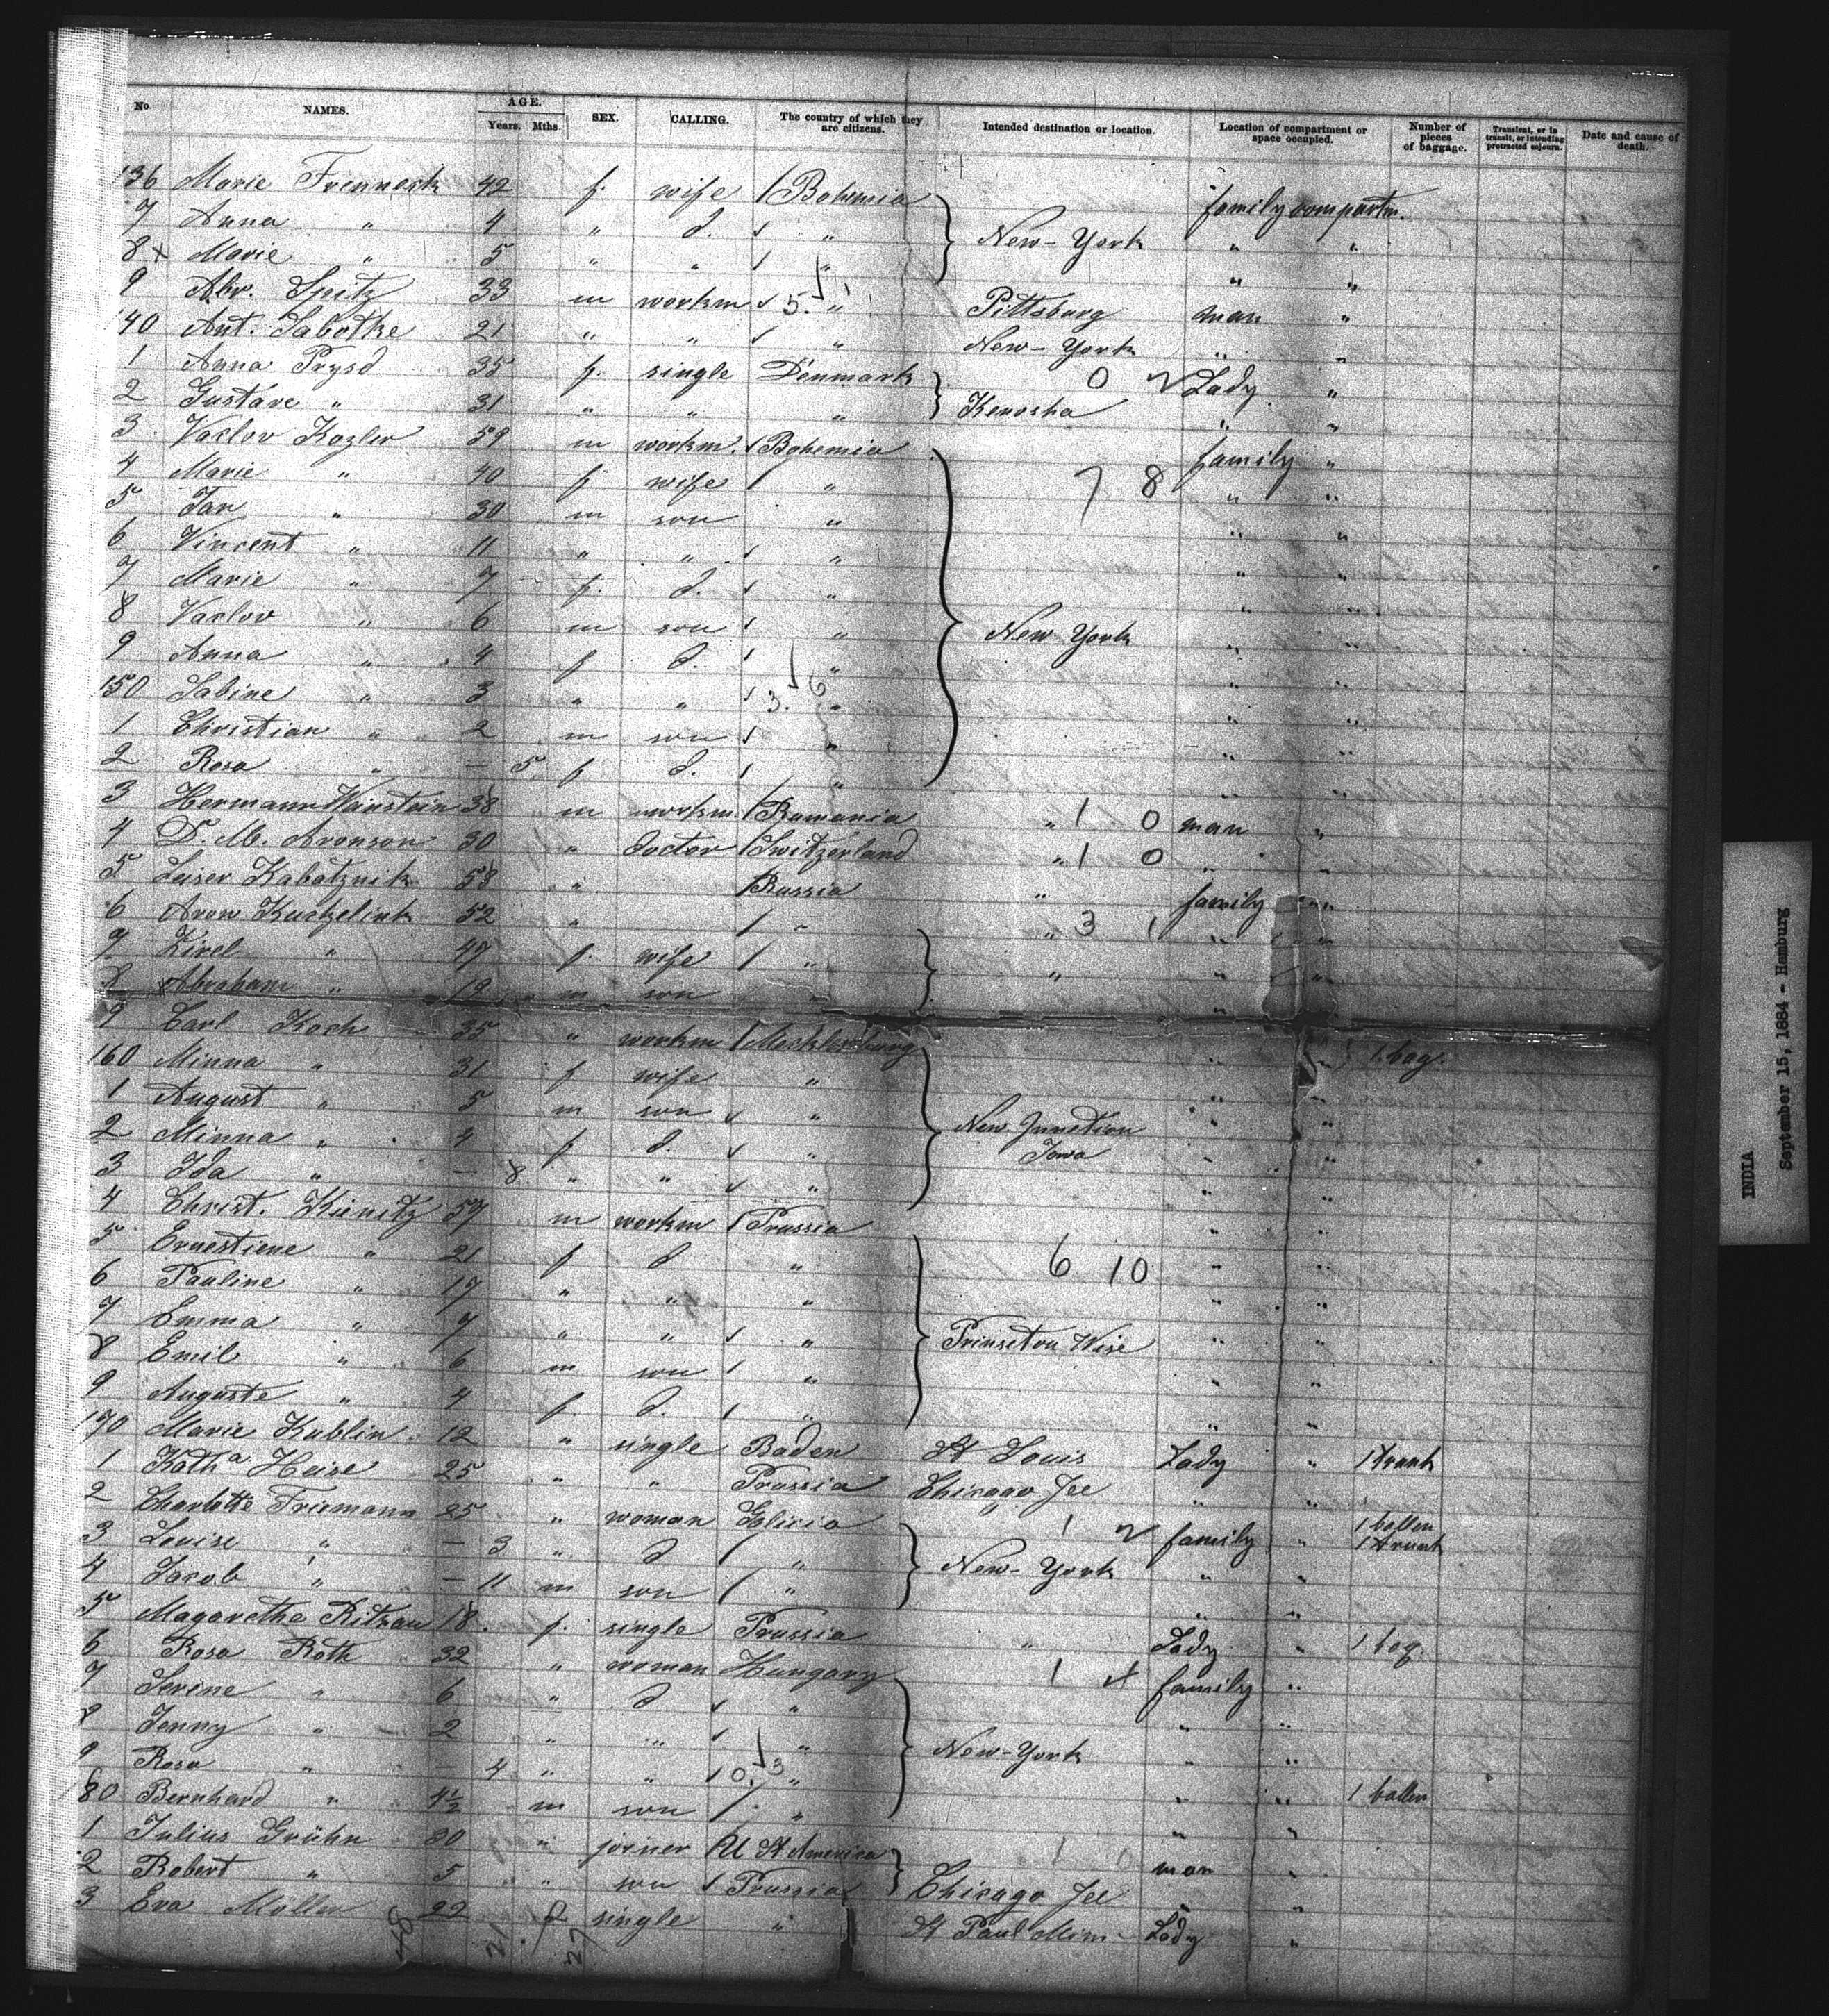 No. NAMES. AGE. Years. Mths. SEX. CALLING. The country of which they are citizens. Intended destination or location. Location of compartment or space occupied. Number of pieces of baggage. Transient, or in transit, or intending protracted sojourn. Date and cause of death.
136 Marie Frenneck 42 f. wife Bohemia family compartm.
7 Anna " 4 " d. " New-York " "
8 x Marie " 5 " " " " "
9 Abr. Spitz 33 m workm 5. " Pittsburg man "
140 Ant. Sabotke 21 " " " New-York " "
1 Anna Prysd 35 f. single Denmark 0 2 Lady "
2 Gustave " 31 " " " Kenosha " "
3 Vaclov Kozler 59 m workm. Bohemia family "
4 Marie " 40 f. wife " 7 8 " "
5 Jan " 30 m son " " "
6 Vincent " 11 " " " " "
7 Marie " 7 f. d. " " "
8 Vaclov " 6 m son " New York " "
9 Anna " 4 f d. " " "
150 Sabine " 3 " " 3. 6 " " "
1 Christian " 2 m son " " "
2 Rosa " — 5 f. d. " " "
3 Hermann Wainstein 38 m workm. Rumania " 1 0 man "
4 D. M. Aronson 30 " Doctor Switzerland " 1 0 " "
5 Leiser Kabatznik 58 " Russia " family "
6 Aron Kuckelink 52 " " " 3 1 " "
7 Zirel " 47 f. wife " " " "
8 Abraham " 19 m son " " "
9 Carl Koch 35 " workm Mecklenburg " " 1 bag.
160 Minna " 31 f wife " " "
1 August " 5 m son " New Junction " "
2 Minna " 4 f d. " Iowa " "
3 Ida " — 8 " " " " "
4 Christ. Kienitz 57 m workm Prussia " "
5 Ernestiene " 21 f d " 6 10 " "
6 Pauline " 17 " " " " "
7 Emma " 7 " " " Prinseton Wise " "
8 Emil " 6 m son " " "
9 Auguste " 4 f. d. " " "
170 Marie Kublin 12 " single Baden St Louis Lady " 1 trunk
1 Katha Heise 25 " " Prussia Chicago Jll " "
2 Charlotte Friemann 25 " woman Galicia 1 2 family " 1 ballen 1 trunk
3 Louise " — 3 " d " New-York " "
4 Jacob " — 11 m son " " "
5 Magarethe Ritzau 18 f. single Prussia " Lady " 1 bag.
6 Rosa Roth 32 " woman Hungary 1 4 family "
7 Serine " 6 " d " " "
8 Jenny " 2 " " " New-York " "
9 Rosa " — 4 " " 0. 3 " " " 1 ballen
180 Bernhard " 4½ m son " " "
1 Julius Grühn 30 " joiner U St America 1 0 man "
2 Robert " 5 " son Prussia Chicago Jll " "
3 Eva Möller 22 f single " St Paul Minn Lady "
48 21 27
INDIA
September 15, 1884 - Hamburg